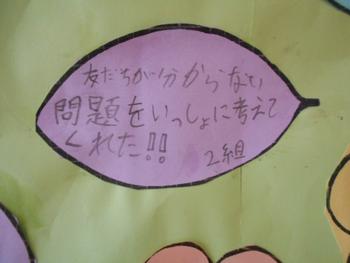 友だちが分からない
問題をいっしょに考えて
くれた!!
2組